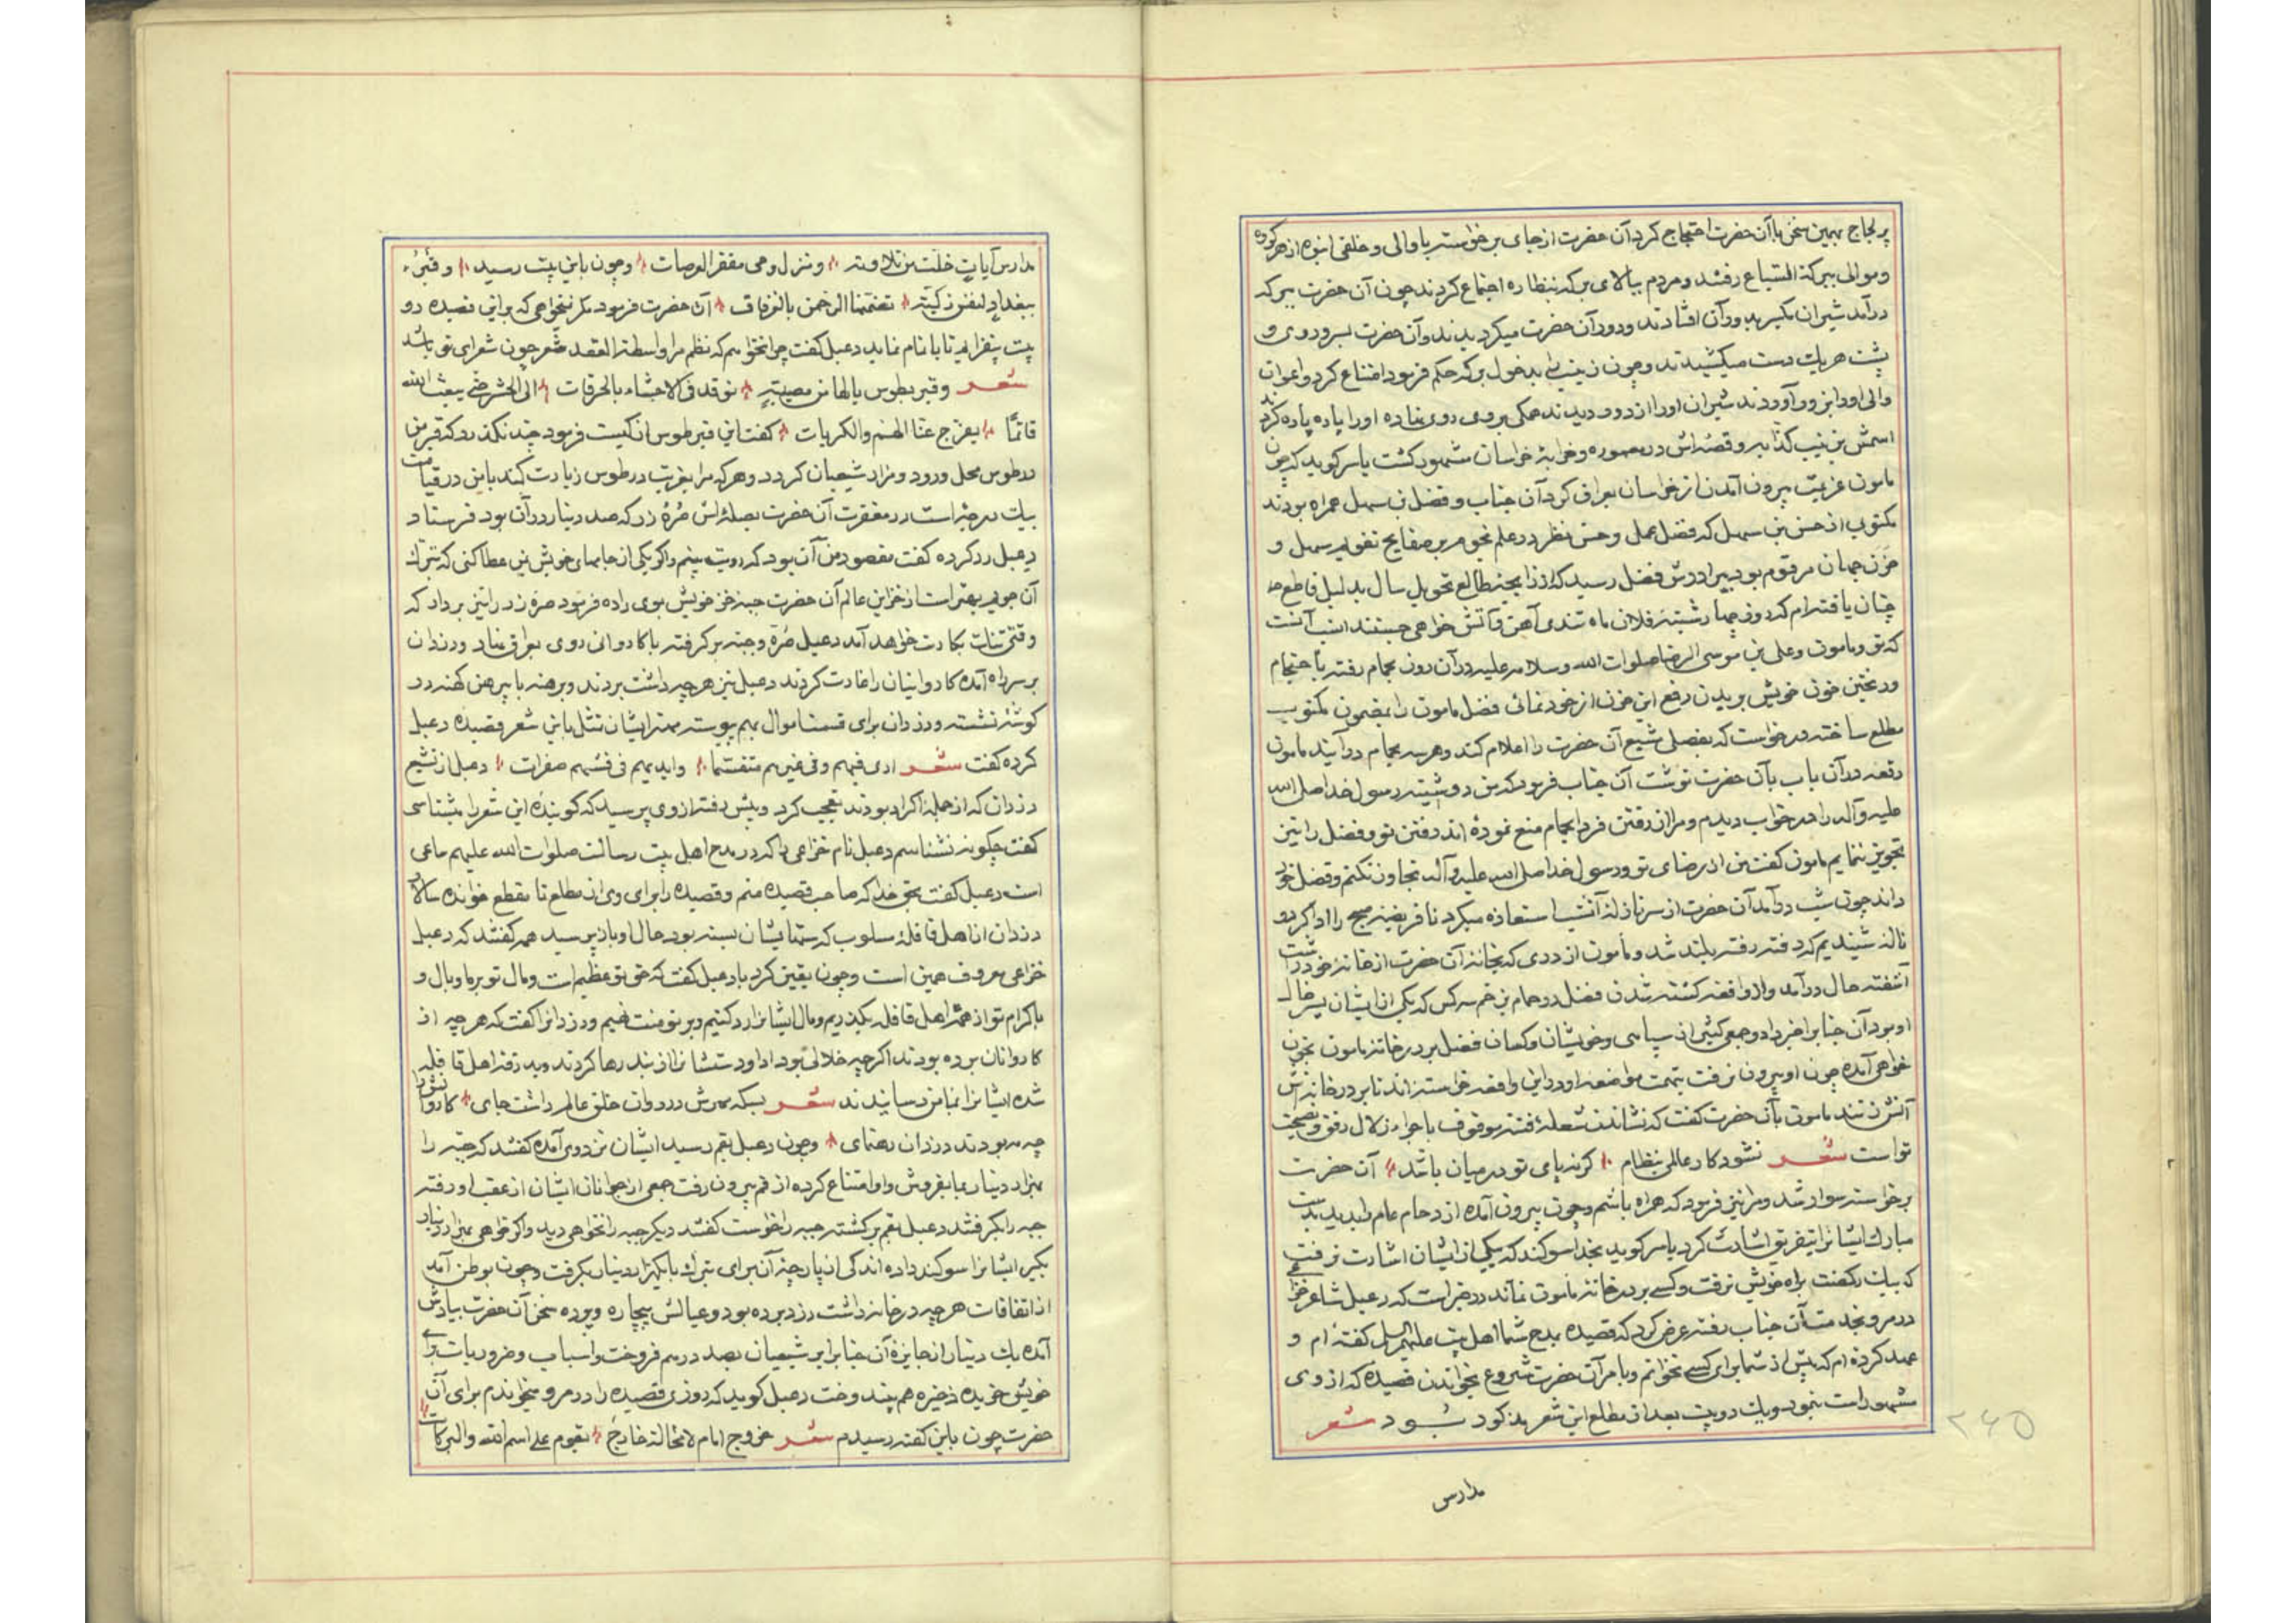 پر لجاج بهمین سخن با آن حضرت احتجاج کرد آن حضرت از جای برخواسته با والی و خلقی انبوه از هر کوه
و موالی ببرکة السباع رفتند و مردم ببالای برکه بنظاره اجتماع کردند چون آن حضرت ببرکه
درآمد شیران بر آن افتادند و دور آن حضرت میکردیدند و آن حضرت بسر و روی و
پشت هر یک دست میکشیدند و چون زینب را بدخول برکه حکم فرمود امتناع کرد و اعوان
والی او را بزور آوردند شیران او را از دور دیدند همکی بروی روی نهاده او را پاره پاره کردند
اسمش زینب کذابه و قصه‌اش در خراسان مشهور کشت یاسر کوید که چون
مامون عزیمت بیرون آمدن از خراسان بعراق کرد آن جناب و فضل بن سهل همراه بودند
مکتوبی از حسن بن سهل که فضل عمل و حسن نظر در علم نجوم بر صفایح تقویم سهل و
حزن جهان مرقوم بود ببرادرش فضل رسید که از زایجه طالع تحویل سال بدلیل قاطع
چنان یافته‌ام که روز چهارشنبه فلان ماه تندی آهن و آتش خواهی جست انسب آنست
که تو و مامون و علی بن موسی الرضا صلوات الله و سلامه علیه در آن روز بحمام رفته باحتجام
و ریختن خون خویش بر بدن رفع این خون از خود نمائی فضل مامون را بمضمون مکتوب
مطلع ساخته درخواست که آن حضرت را اعلام کند و هر سه بحمام درآیند مامون
رقعه در آن باب بآن حضرت نوشت آن جناب فرمود که من دوشینه رسول خدا صلی الله
علیه و آله را در خواب دیدم و مرا از رفتن فردا بحمام منع نموده‌اند رفتن تو و فضل را نیز
تجویز ننمایم مامون کفت من از رضای تو و رسول خدا صلی الله علیه و آله تجاوز نکنم و فضل خود
داند چون شب درآمد آن حضرت از سر نازله آنشب استعاذه میکرد تا فریضه صبح را ادا کرد و
ناله شنیدیم که رفته رفته بلند شد و مامون از دری که بخانه آن حضرت از خانه خود داشت
آشفته حال درآمد و از واقعه کشته شدن فضل در حمام بزخم سه کس که یکی از ایشان پسر خاله
او بود آن جناب را خبر داد و جمعی کثیر از سپاهی و خویشان و کسان فضل بر در خانه مامون بخون
خواهی آمده چون او بیرون نرفت بتهمت مواضعه او در این واقعه خواسته‌اند تا بر در خانه‌اش
آتش زنند مامون بآن حضرت کفت که نشاندن شعله فتنه موقوف باجراء زلال رفق و نصیحت
تو است شعر نشود کار عالمی بنظام ؞ کر نه پای تو در میان باشد ؞ آن حضرت
برخواسته سوار شد و مرا نیز فرمود که همراه باشم و چون بیرون آمده ازدحام عام را بدید بدست
مبارک ایشانرا بتفریق اشارت کرد یاسر کوید بخدا سوکند که بیکی از ایشان اشارت نرفت
که بیک رکضت براه خویش نرفت و کسی بر در خانه مامون نماند در خبر است که دعبل شاعر خزاعی
در مرو بخدمت آن جناب رفته عرض کرد که قصیده بمدح شما اهل بیت علیهم السلام کفته‌ام و
عهد کرده‌ام که پیش از شما برای کسی نخوانم و بامر آن حضرت شروع بخواندن قصیده که از وی
مشهور است نمود و یک دو بیت بعد از مطلع این شعر مذکور شود شعر
مدارس
۲۶۵
مدارس آیات خلت من تلاوته ؞ و منزل وحی مقفر العرصات ؞ و چون باین بیت رسید ؞ و قبر
ببغداد لنفس زکیة ؞ تضمنها الرحمن بالغرفات ؞ آن حضرت فرمود مکر نمیخواهی که بر این قصیده دو
بیت بیفزایم تا باتمام نماید دعبل کفت چرا نخواهم که نظم مرا واسطة العقد شعر چون شعرای تو باشد
شعر و قبر بطوس یا لها من مصیبة ؞ توقد فی الاحشاء بالحرقات ؞ الی الحشر حتی یبعث الله
قائما ؞ یفرج عنا الهم و الکربات ؞ کفت این قبر طوس از کیست فرمود چند نکذرد که قبر من
در طوس محل ورود و مزار شیعیان کردد و هر که مرا بغربت در طوس زیارت کند با من در قیامت
بیک درجه است در مغفرت آن حضرت بصله‌اش صره زر که صد دینار در آن بود فرستاد
دعبل رد کرده کفت مقصود من آن بود که رویت بینم و اکر یکی از جامهای خویش بمن عطا کنی که تبرک
آن جویم بهتر است از خزاین عالم آن حضرت جبه خز خویش بوی داده فرمود صره زر را نیز بردار که
وقتی بکارت خواهد آمد دعبل صره و جبه برکرفته با کاروانی روی بعراق نهاد و دزدان
بر سر راه آمده کاروانیان را غارت کردند دعبل نیز هر چه داشت بردند و برهنه با پیرهن کهنه در
کوشه نشسته و دزدان برای قسمت اموال بهم پیوسته مهتر ایشان تمثل باین شعر قصیده دعبل
کرده کفت شعر اری فیئهم فی غیرهم متقسما ؞ و ایدیهم من فیئهم صفرات ؞ دعبل از تشیع
دزدان که از جمله اکراد بودند تعجب کرد و پیش رفته از وی پرسید که کوینده این شعر را میشناسی
کفت چکونه نشناسم دعبل نام خزاعی را که در مدح اهل بیت رسالت صلوات الله علیهم ساعی
است دعبل کفت بحق خدا که صاحب قصیده منم و قصیده را برای وی از مطلع تا مقطع خوانده سالار
دزدان از اهل قافله مسلوب که بسته بود حال او باز پرسید همه کفتند که دعبل
خزاعی معروف همین است و چون یقین کرد با دعبل کفت که حق تو عظیم است و مال تو بر ما وبال و
باکرام تو از همه اهل قافله بکذریم و مال ایشانرا رد کنیم و بر تو منت نهیم و دزدانرا کفت که هر چه از
کاروانان برده بودند اکر چه خلالی بود و دستشانرا از بند رها کردند و بدرقه اهل قافله
شده ایشانرا بمأمن رسانیدند شعر بسکه مهرش در روان خلق عالم داشت جای ؞ کاروانرا
چه بودند دزدان رهنمای ؞ و چون دعبل بقم رسید ایشان نزد وی آمده کفتند که جبه را
بهزار دینار بما بفروش و او امتناع کرده از قم بیرون رفت جمعی از جوانان ایشان از عقب او رفته
جبه را بکرفتند دعبل بقم برکشته جبه را خواست کفتند دیکر جبه را نخواهی دید و اکر خواهی هزار دینار
بکیر ایشانرا سوکند داده اندکی از پارچه آن برای تبرک با یکهزار دینار بکرفت و چون بوطن آمد
از اتفاقات هر چه در خانه داشت دزد برده بود و عیالش بیچاره و پرده سخن آن حضرت بیادش
آمده یک دینار از جایزه آن جناب را بر شیعیان بصد درهم فروخت و اسباب و ضروریات برای
خویش خریده ذخیره هم پیندوخت دعبل کوید که روزی قصیده را در مرو میخواندم برای آن
حضرت چون باین کفته رسیدم شعر خروج امام لا محالة خارج ؞ یقوم علی اسم الله و البرکات ؞